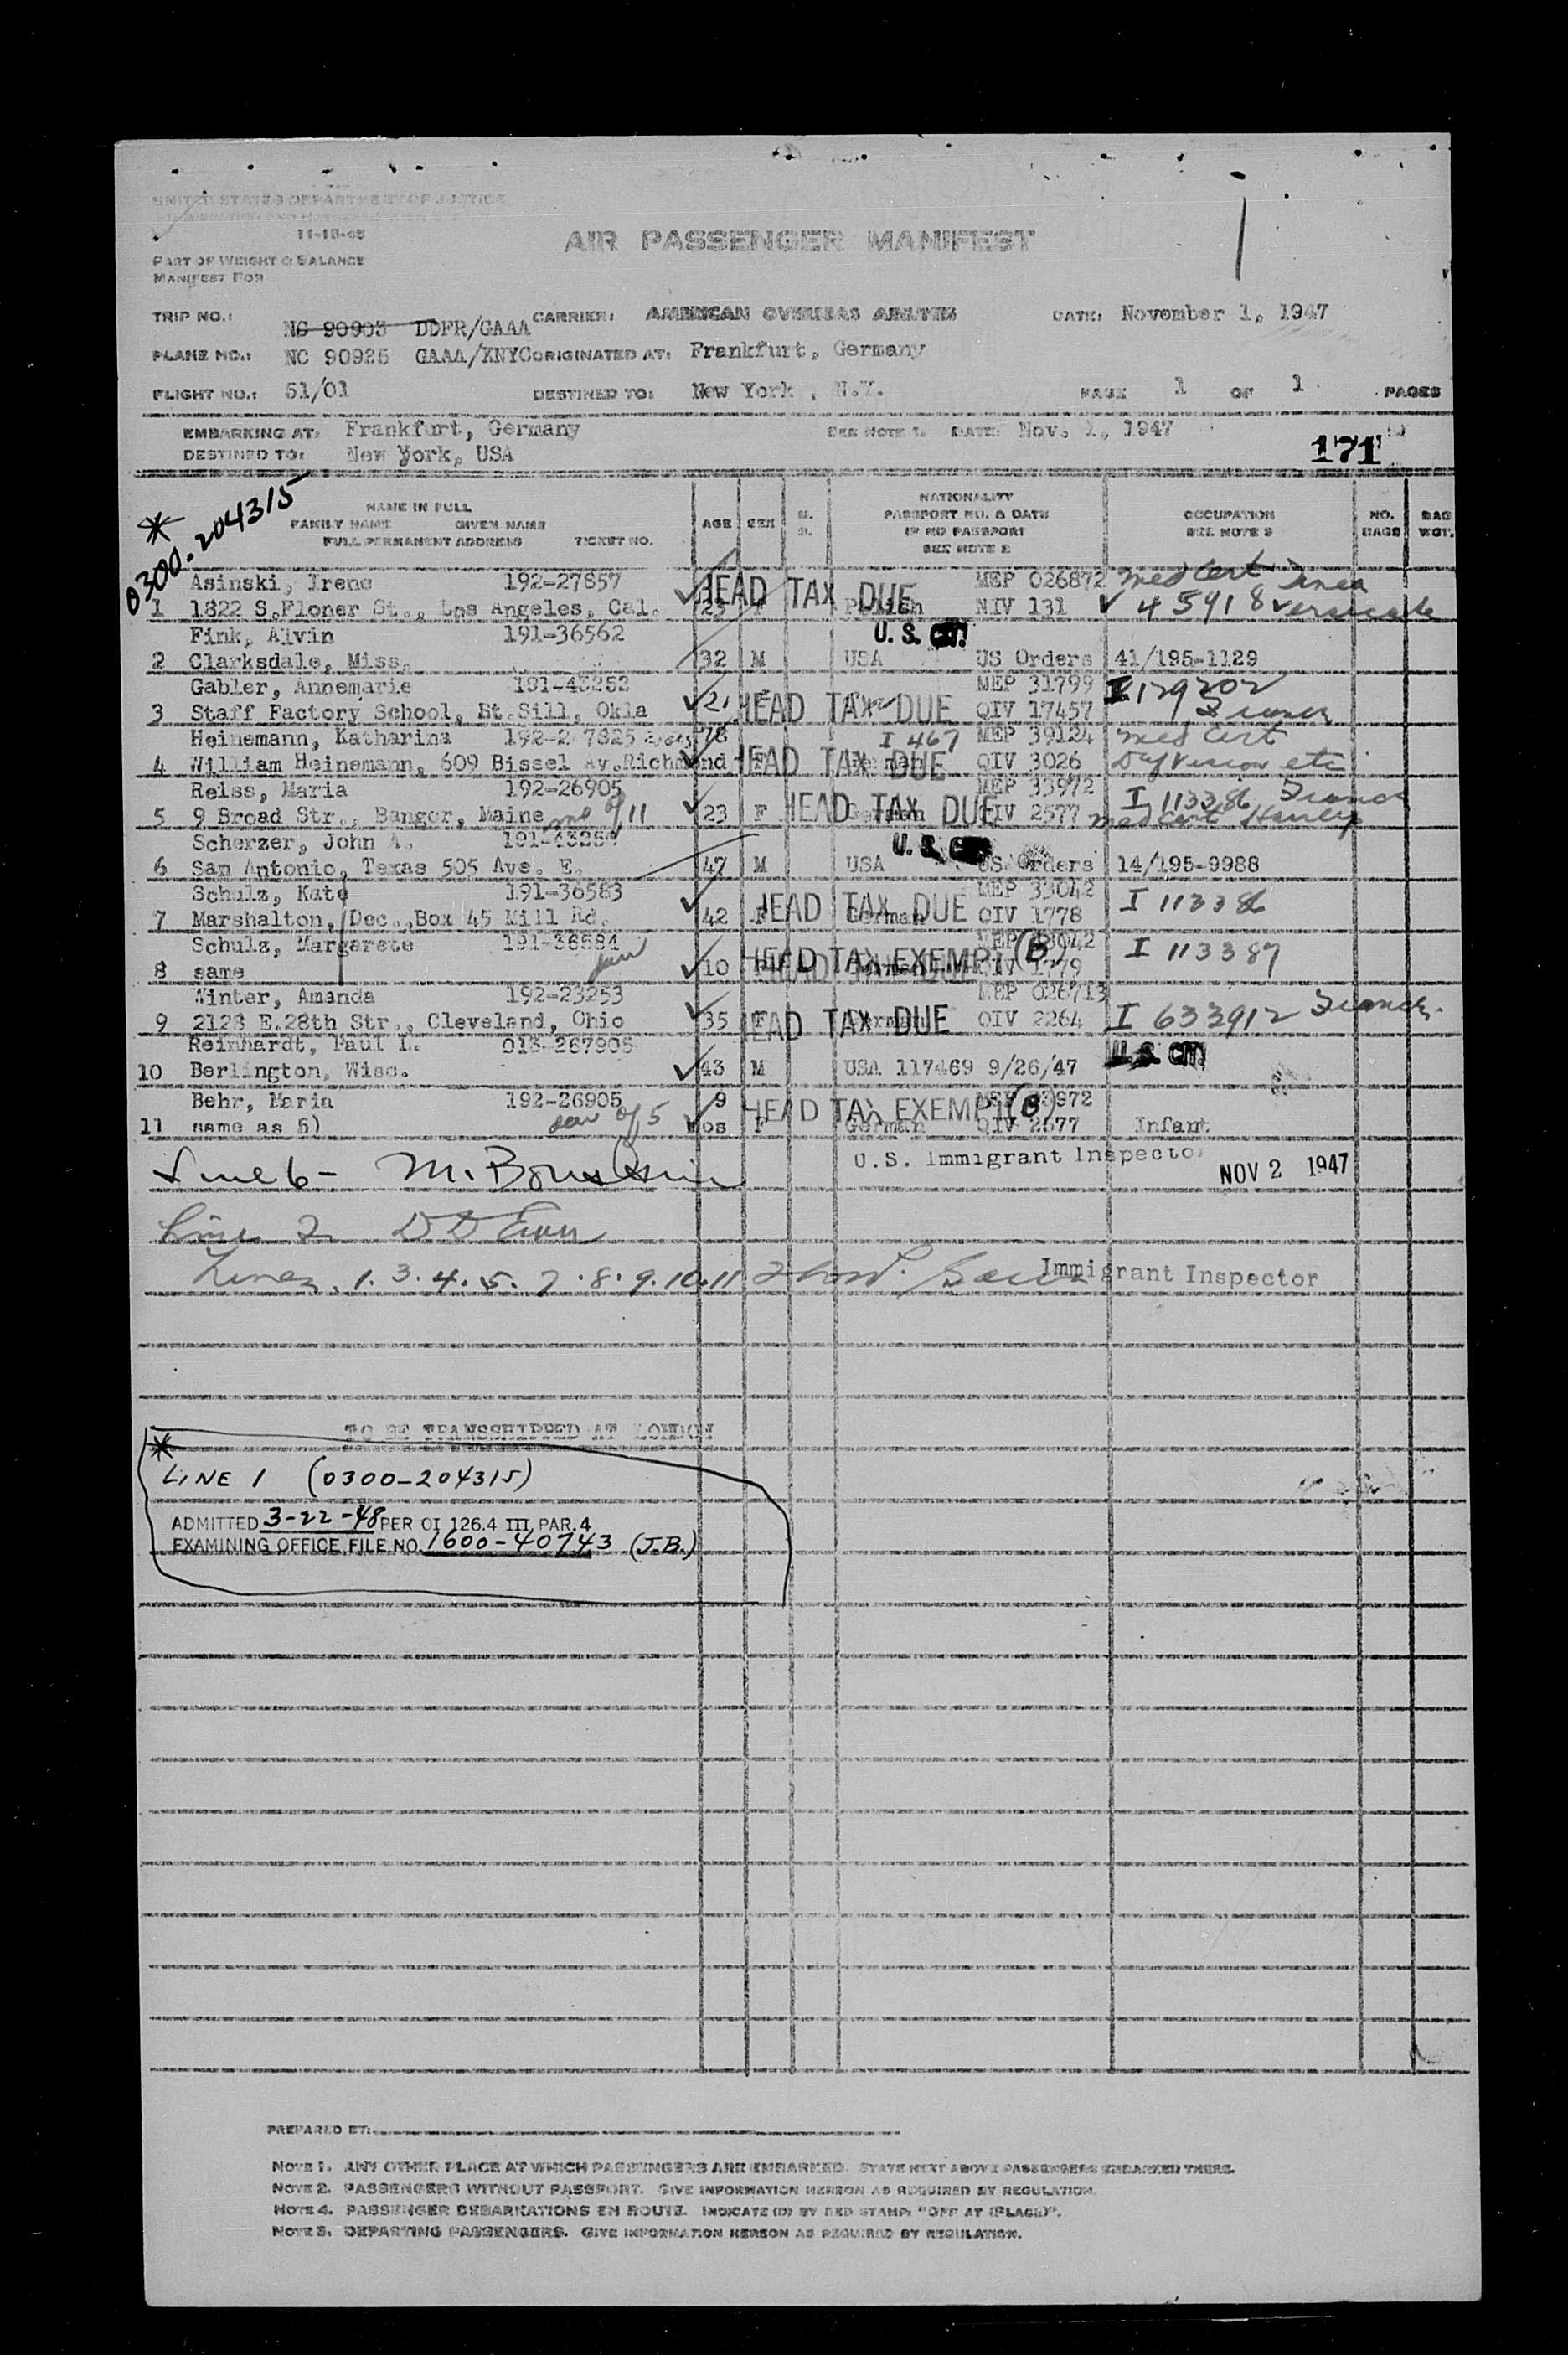 UNITED STATES DEPARTMENT OF JUSTICE
11-15-45
AIR PASSENGER MANIFEST
PART OF WEIGHT & BALANCE
MANIFEST FOR
TRIP NO.: NC 90903 DDFR/GAAA CARRIER: AMERICAN OVERSEAS AIRLINES DATE: November 1, 1947
PLANE NO.: NC 90925 GAAA/KNYC ORIGINATED AT: Frankfurt, Germany
FLIGHT NO.: 51/01 DESTINED TO: New York , N.Y. PAGE 1 OF 1 PAGES
EMBARKING AT: Frankfurt, Germany SEE NOTE 1. DATE: Nov. 1, 1947
DESTINED TO: New York, USA 171
* 0300-204315
NAME IN FULL
FAMILY NAME GIVEN NAME
FULL PERMANENT ADDRESS TICKET NO.
AGE SEX
NATIONALITY
PASSPORT NO. & DATE
IF NO PASSPORT
SEE NOTE 2
OCCUPATION
SEE NOTE 3
NO. BAGS
BAG WGT.
Asinski, Irene 192-27857 HEAD TAX DUE MEP 026872 med Cert Tinea
1 1822 S.Floner St., Los Angeles, Cal. 25 NIV 131 45918 versicolo
Fink, Alvin 191-36562 U.S.
2 Clarksdale, Miss. 32 M USA US Orders 41/195-1129
Gabler, Annemarie 191-43252 MEP 31799 I 129202
3 Staff Factory School, Bt.Sill, Okla 21 HEAD TAX DUE QIV 17457
Heinemann, Katharina 192-27825 78 I 467 MEP 39124 med Cert
4 William Heinemann, 609 Bissel Av.Richmond HEAD TAX DUE QIV 3026 Def Vision etc
Reiss, Maria 192-26905 MEP 33972 I 113386
5 9 Broad Str., Bangor, Maine mo of 11 23 F HEAD TAX DUE QIV 2577 med Cert
Scherzer, John A. 191-43254 U.S.
6 San Antonio, Texas 505 Ave. E. 47 M USA US Orders 14/195-9988
Schulz, Kate 191-36583 HEAD TAX DUE MEP 33042 I 113386
7 Marshalton, Dec.,Box 45 Mill Rd. 42 F German QIV 1778
Schulz, Margarete 191-36584 HEAD TAX EXEMPT (B) MEP 33042 I 113387
8 same dau 10 QIV 1779
Winter, Amanda 192-23253 MEP 026713
9 2128 E.28th Str., Cleveland, Ohio 35 F HEAD TAX DUE German QIV 2264 I 633912
Reinhardt, Paul I. 018-267905 U.S. Cit
10 Berlington, Wisc. 43 M USA 117469 9/26/47
Behr, Maria 192-26905 9 HEAD TAX EXEMPT (B) 33972
11 same as 5) dau of 5 mos F German QIV 2577 Infant
Line 6- M. U.S. Immigrant Inspector NOV 2 1947
Line 2
Lines 1. 3. 4. 5. 7. 8. 9. 10. 11 Immigrant Inspector
TO BE TRANSSHIPPED AT LONDON
*
LINE 1 (0300-204315)
ADMITTED 3-22-48 PER OI 126.4 III, PAR. 4
EXAMINING OFFICE FILE NO. 1600-40743 (J.B.)
PREPARED BY:
NOTE 1. ANY OTHER PLACE AT WHICH PASSENGERS ARE EMBARKED. STATE NEXT ABOVE PASSENGERS EMBARKED THERE.
NOTE 2. PASSENGERS WITHOUT PASSPORT. GIVE INFORMATION HEREON AS REQUIRED BY REGULATION.
NOTE 4. PASSENGER DEBARKATIONS EN ROUTE. INDICATE (D) BY RED STAMP, "OFF AT (PLACE)".
NOTE 3. DEPARTING PASSENGERS. GIVE INFORMATION HEREON AS REQUIRED BY REGULATION.